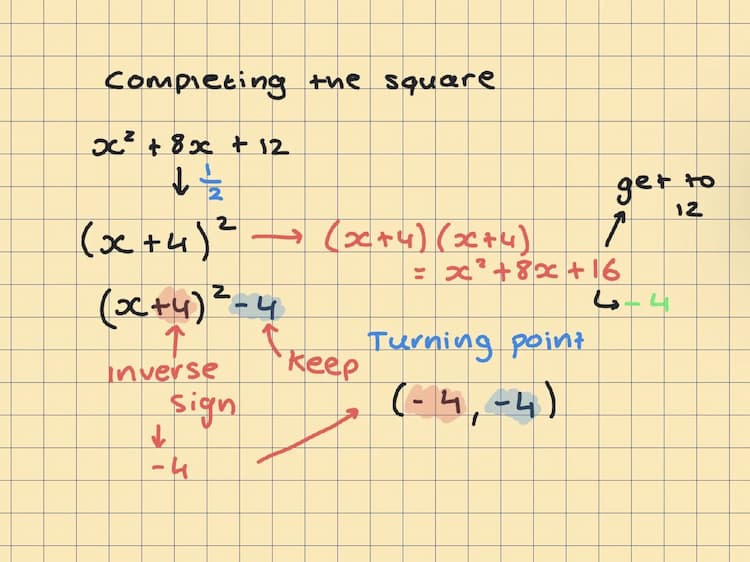 Completing the square
x² + 8x + 12
↓ 1/2
(x+4)² → (x+4)(x+4)
= x² + 8x + 16
get to
12
↳ - 4
(x+4)² - 4
inverse
sign
↓
- 4
Keep
Turning point
(-4, -4)